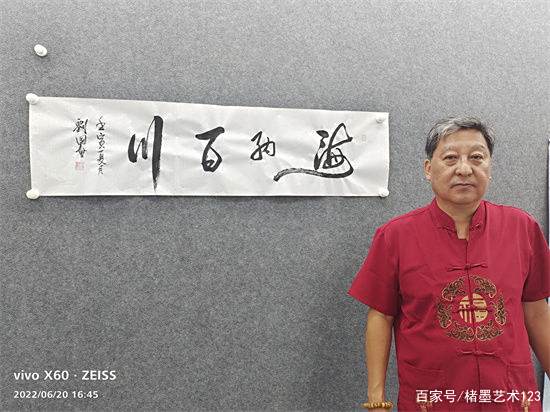 海纳百川
壬寅夏月
劉
福
vivo X60 · ZEISS
2022/06/20 16:45
百家号/楮墨艺术123